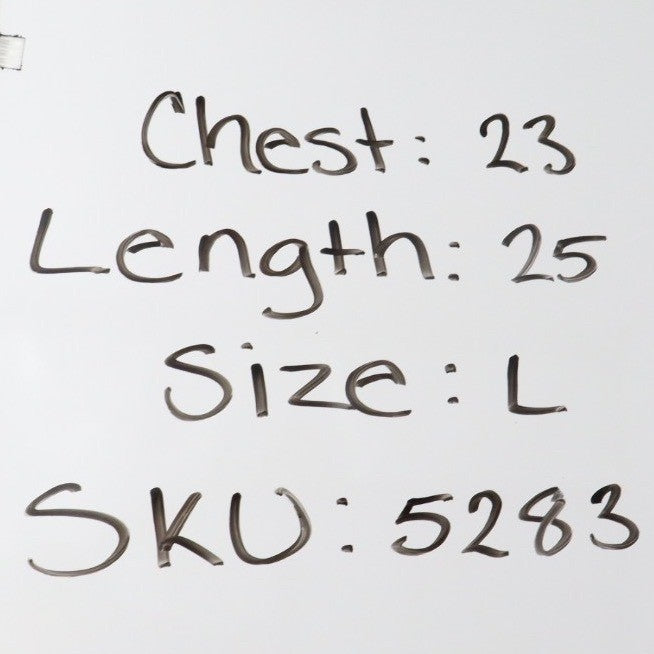 Chest: 23
Length: 25
Size: L
SKU: 5283